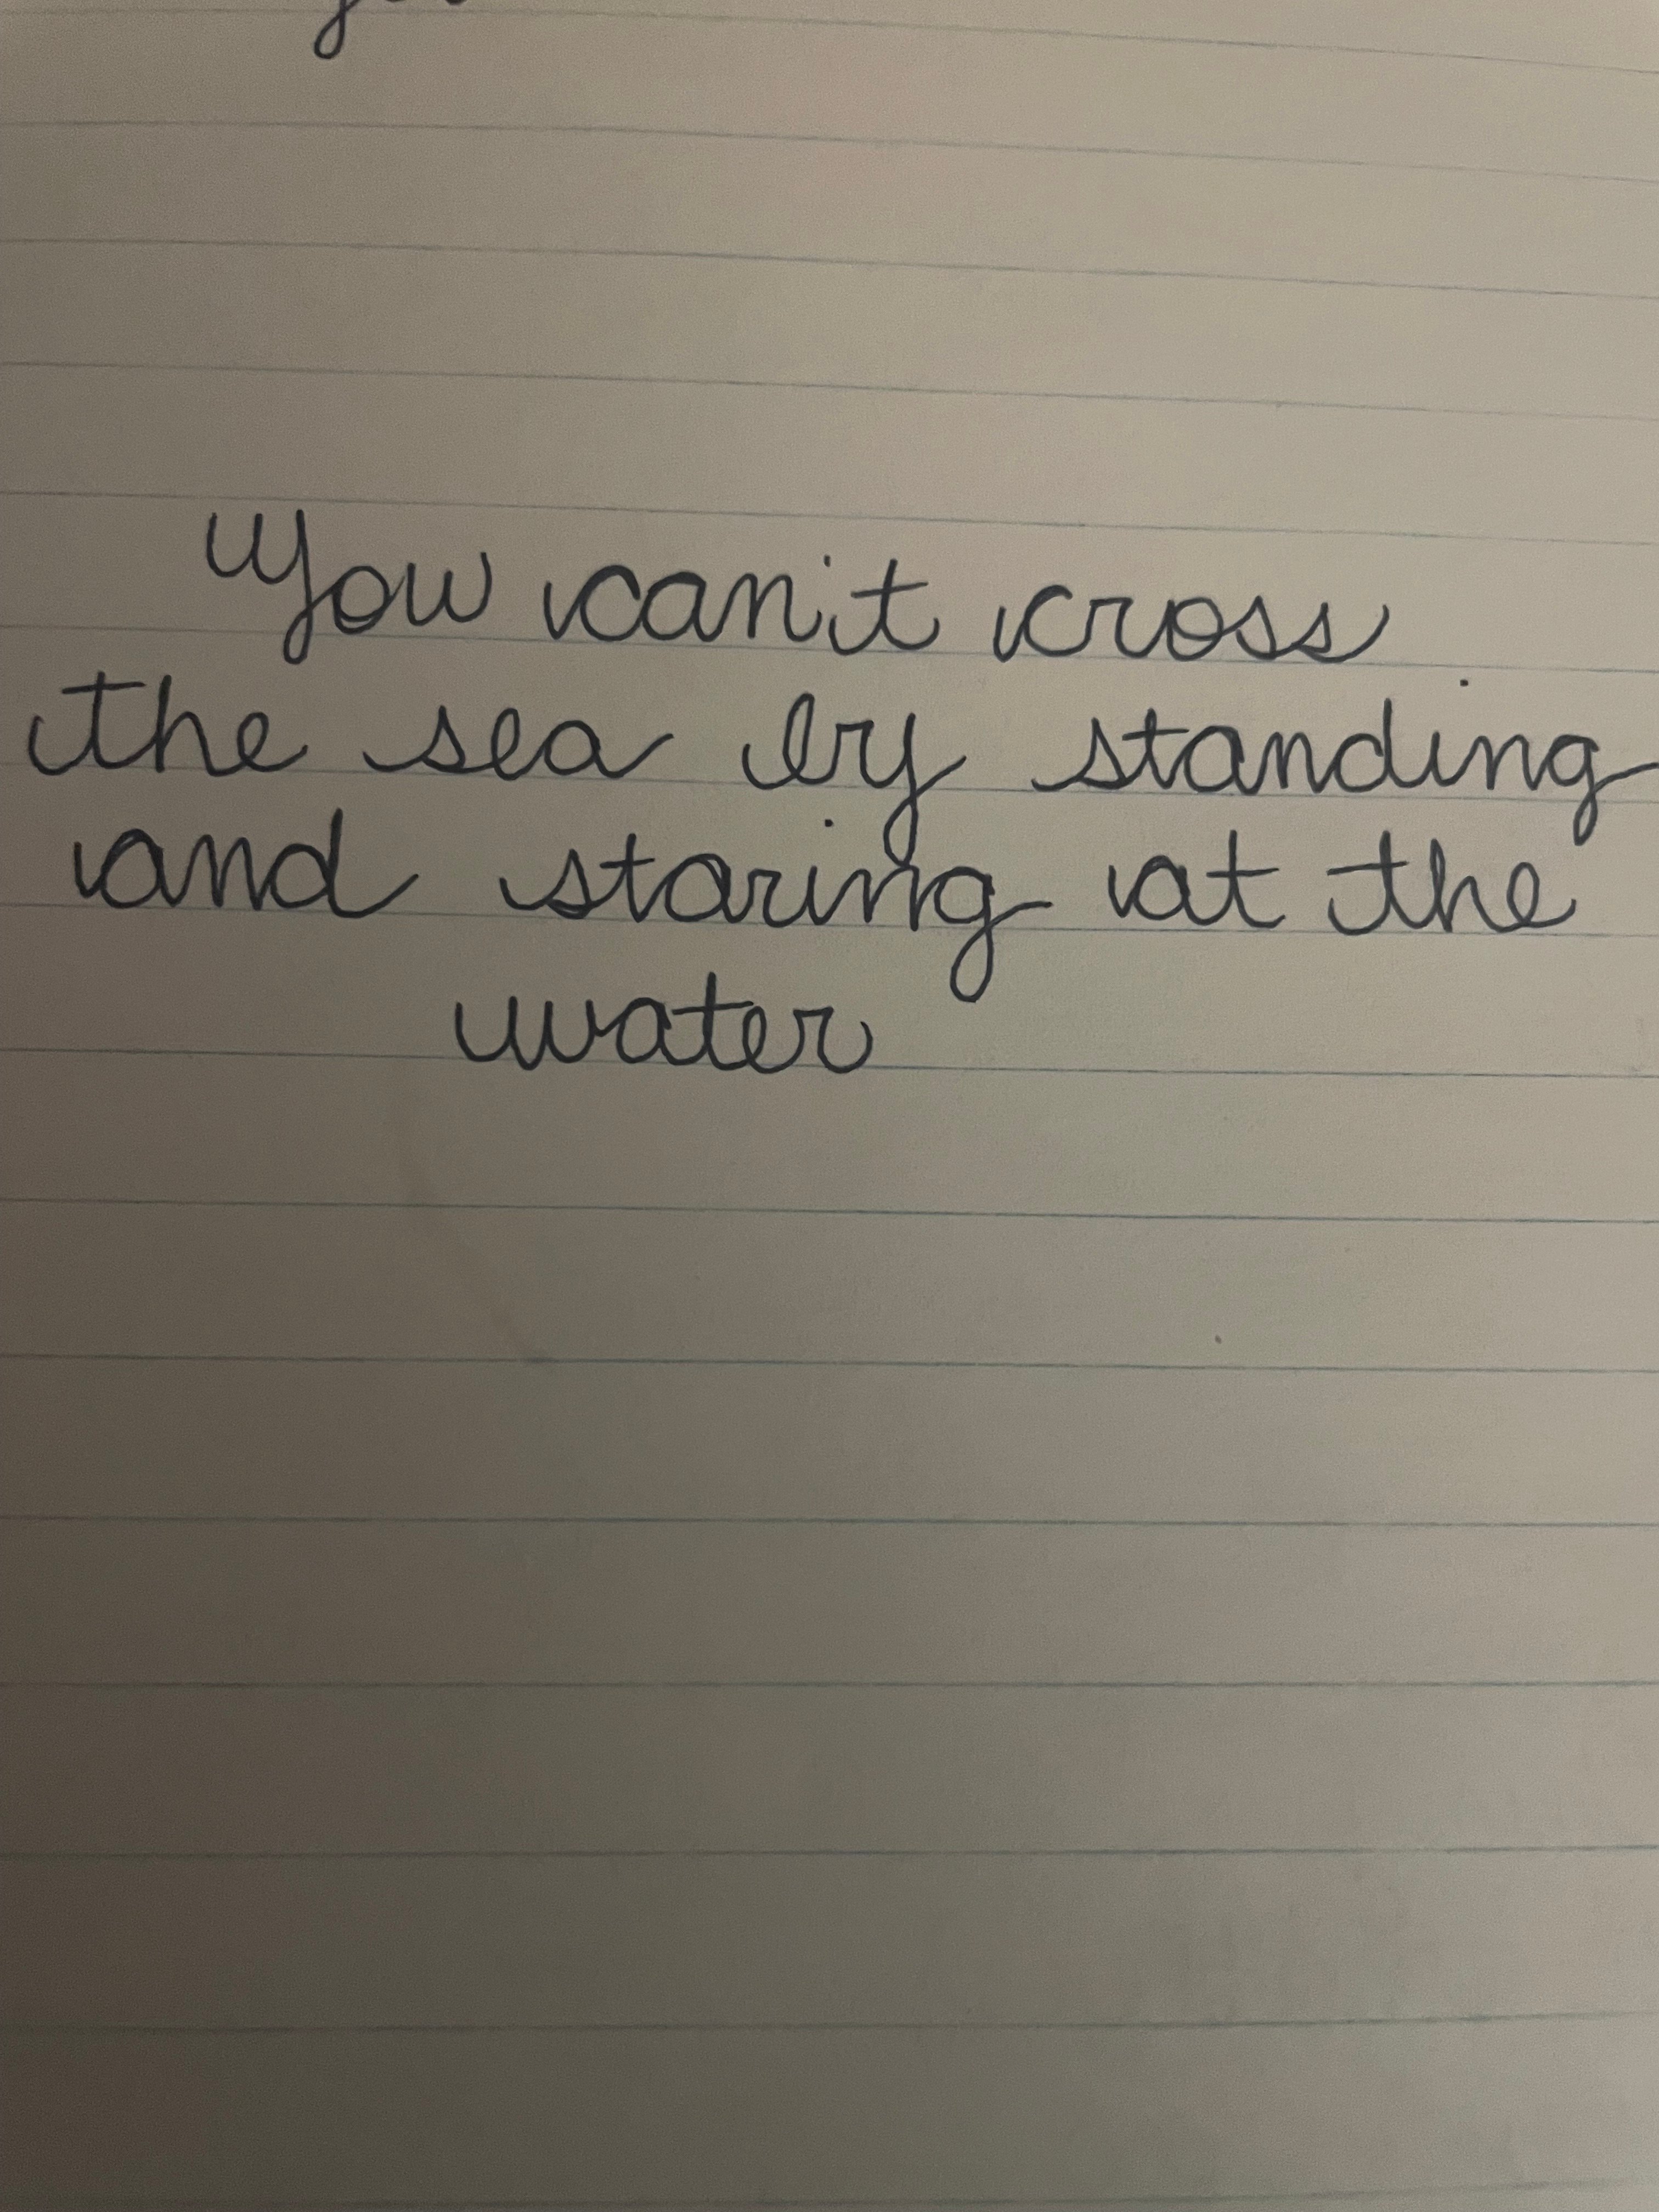 You can't cross
the sea by standing
and staring at the
water